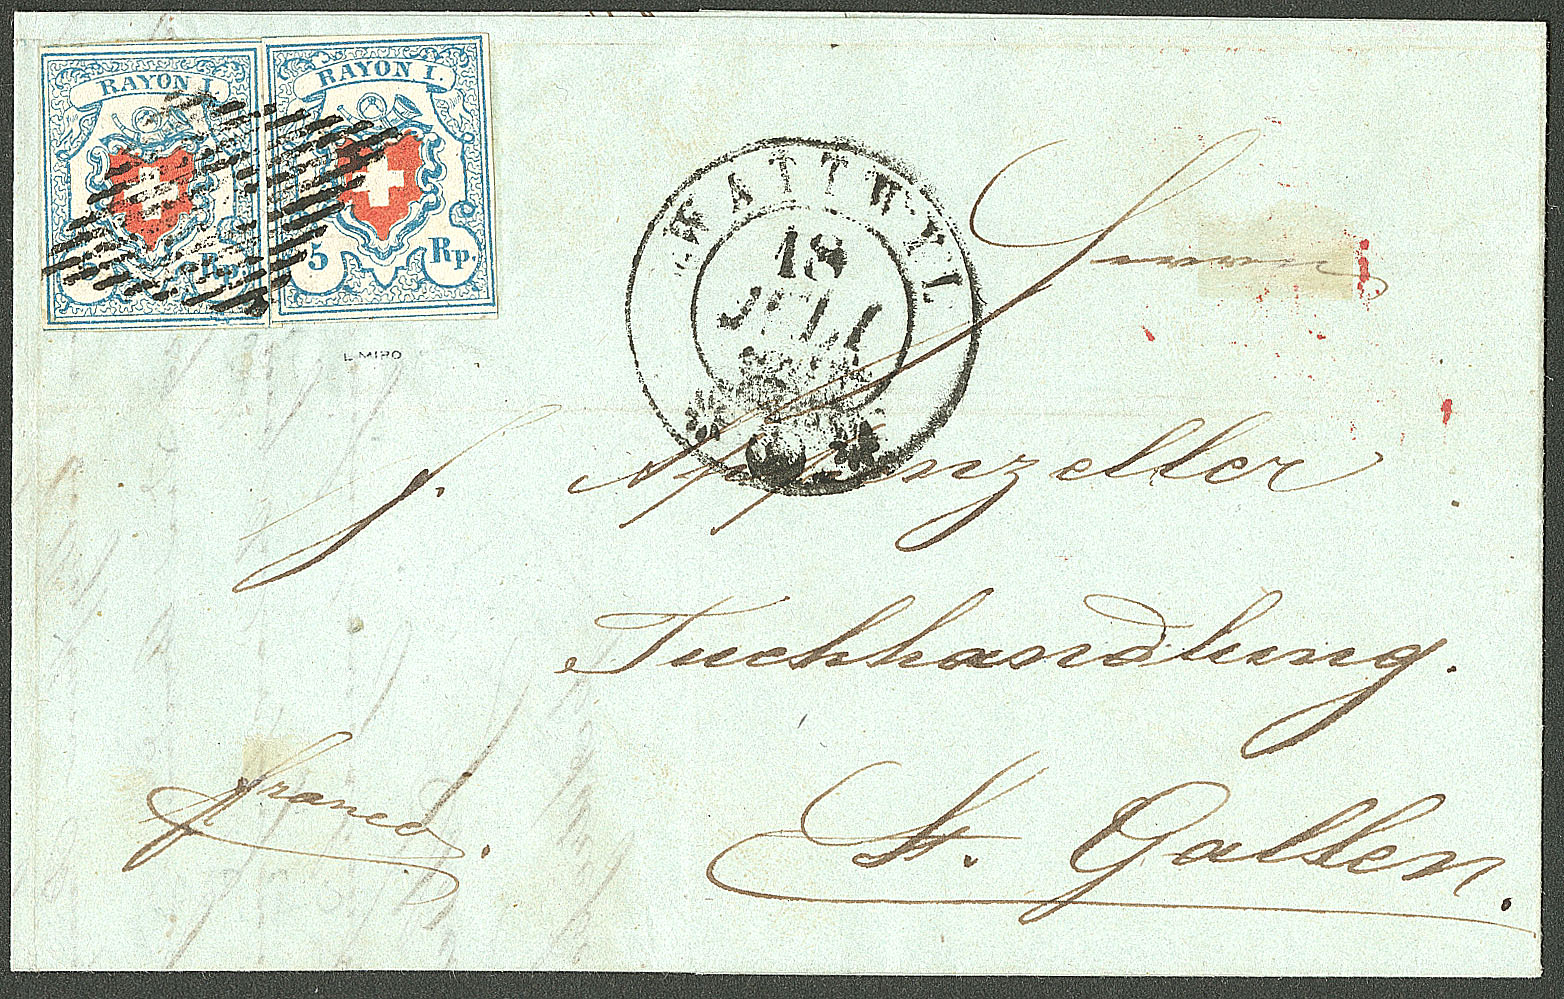 RAYON I.
5 Rp.
RAYON I.
5 Rp.
L. MIRO
WATTWYL
18
JULI
Herrn
J. Appenzeller
Tuchhandlung.
franco.
St. Gallen.